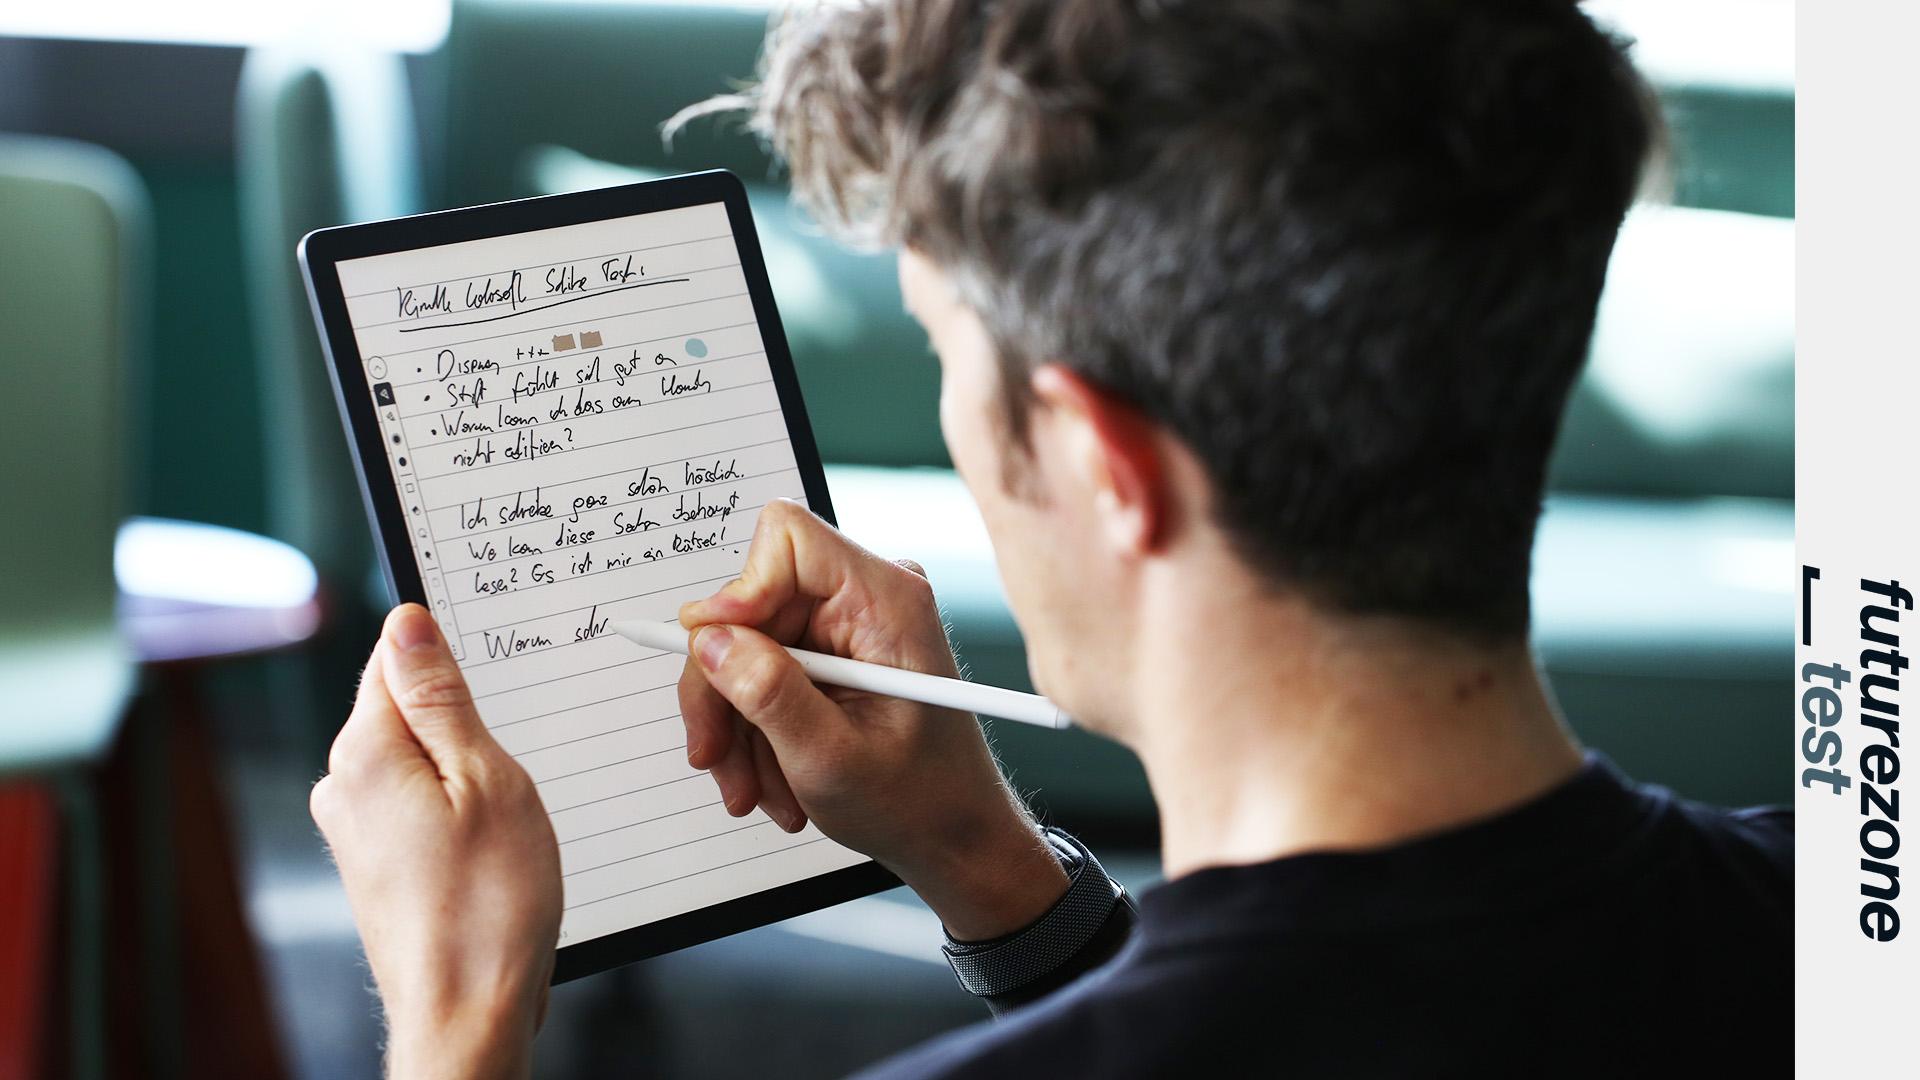 Kindle Colorsoft Scribe Test:
• Display +++
• Stift fühlt sich gut an
• Warum kann ich das am Handy
nicht editieren?
Ich schreibe ganz schön hässlich.
Wo kann diese Sachen überhaupt
lesen? Es ist mir ein Rätsel!
Warum schr
futurezone
test